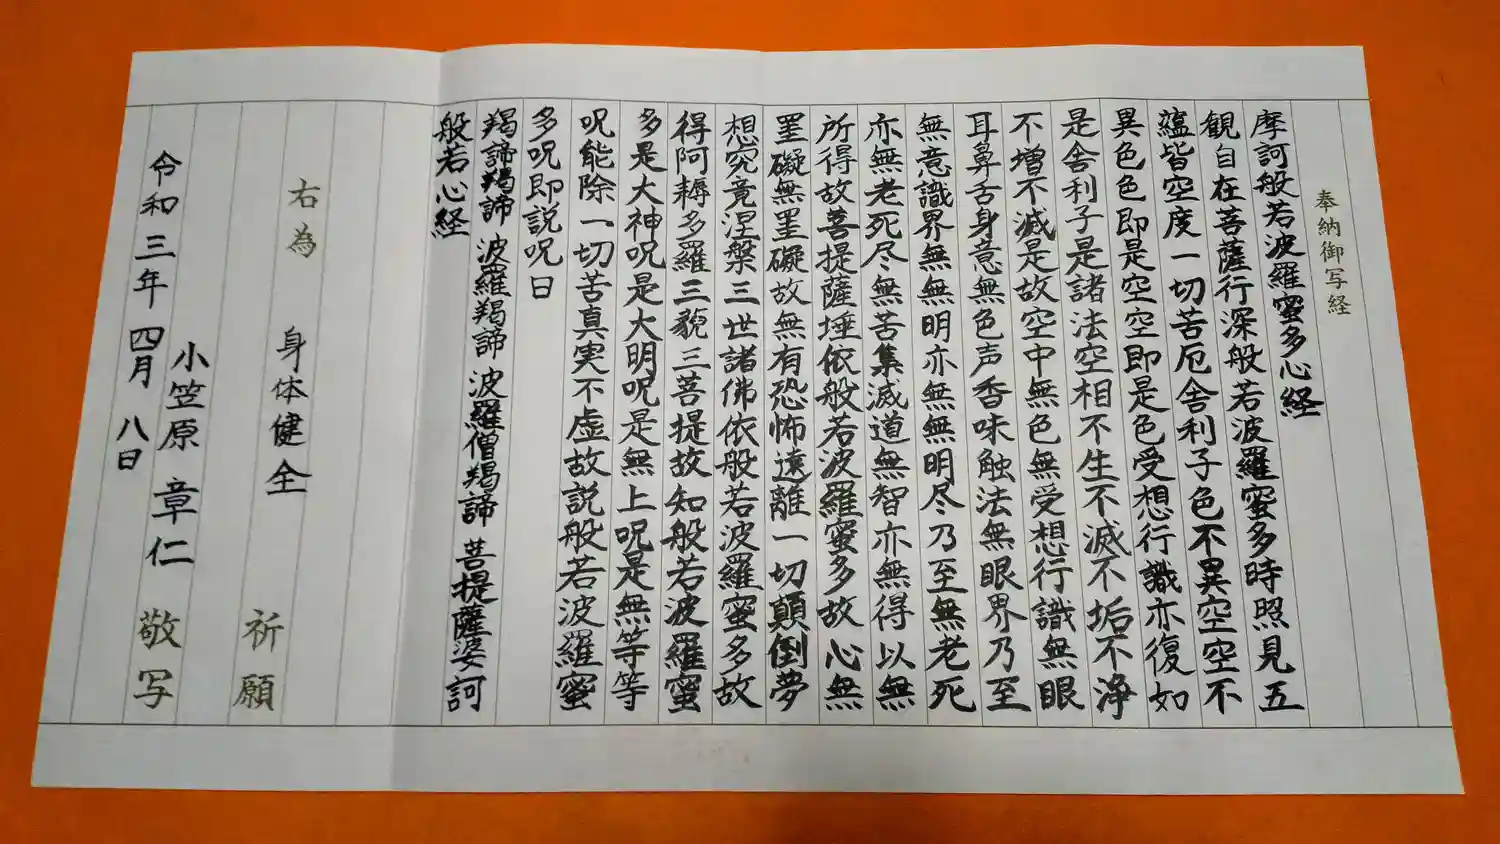 奉納御写経
摩訶般若波羅蜜多心経
観自在菩薩行深般若波羅蜜多時照見五
蘊皆空度一切苦厄舎利子色不異空空不
異色色即是空空即是色受想行識亦復如
是舎利子是諸法空相不生不滅不垢不浄
不増不滅是故空中無色無受想行識無眼
耳鼻舌身意無色声香味触法無眼界乃至
無意識界無無明亦無無明尽乃至無老死
亦無老死尽無苦集滅道無智亦無得以無
所得故菩提薩埵依般若波羅蜜多故心無
罣礙無罣礙故無有恐怖遠離一切顛倒夢
想究竟涅槃三世諸佛依般若波羅蜜多故
得阿耨多羅三藐三菩提故知般若波羅蜜
多是大神呪是大明呪是無上呪是無等等
呪能除一切苦真実不虚故説般若波羅蜜
多呪即説呪曰
羯諦羯諦 波羅羯諦 波羅僧羯諦 菩提薩婆訶
般若心経
右為 身体健全 祈願
小笠原 章仁 敬写
令和三年四月八日